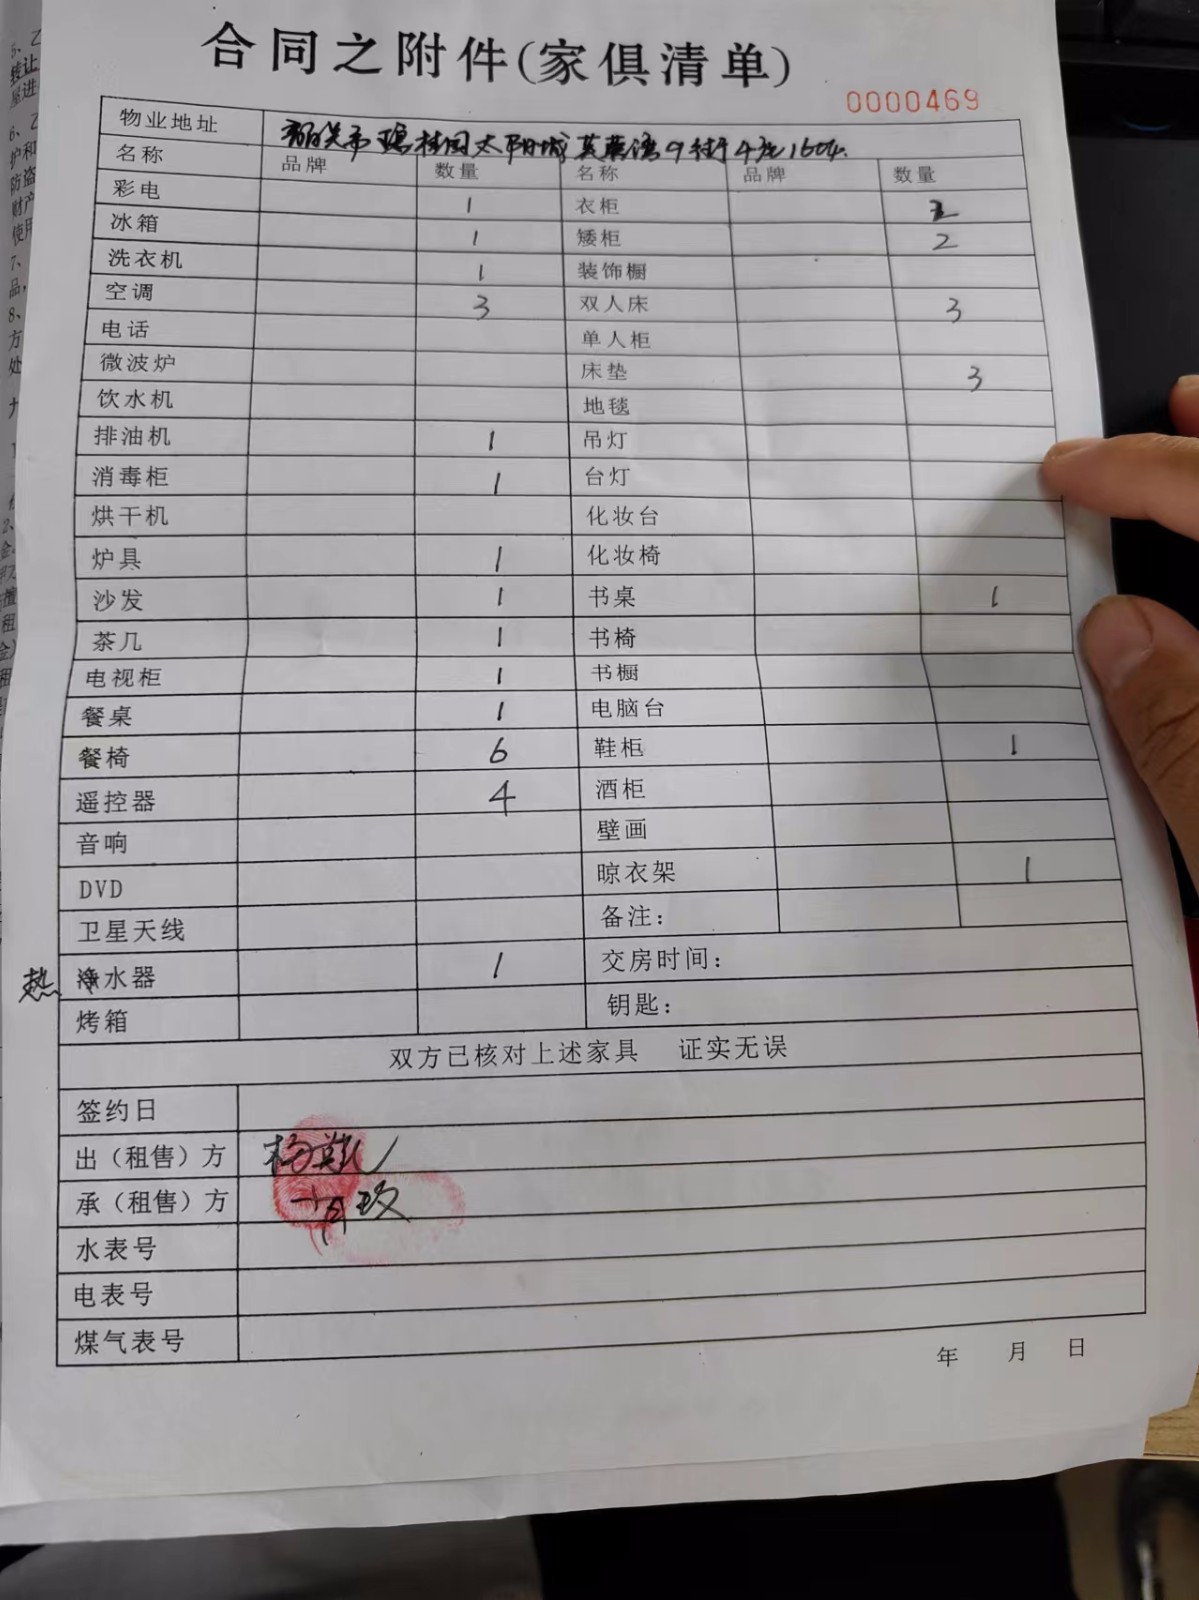 合同之附件(家俱清单)
0000469
物业地址 韶关市 碧桂园太阳城芙蓉湾9街4座1604.
名称 品牌 数量 名称 品牌 数量
彩电 1 衣柜
冰箱 1 矮柜 2
洗衣机 1 装饰橱
空调 3 双人床 3
电话 单人柜
微波炉 床垫 3
饮水机 地毯
排油机 1 吊灯
消毒柜 1 台灯
烘干机 化妆台
炉具 1 化妆椅
沙发 1 书桌 1
茶几 1 书椅
电视柜 1 书橱
餐桌 1 电脑台
餐椅 6 鞋柜 1
遥控器 4 酒柜
音响 壁画
DVD 晾衣架 1
卫星天线 备注：
热 净水器 1 交房时间：
烤箱 钥匙：
双方已核对上述家具 证实无误
签约日
出（租售）方
承（租售）方
水表号
电表号
煤气表号
年 月 日